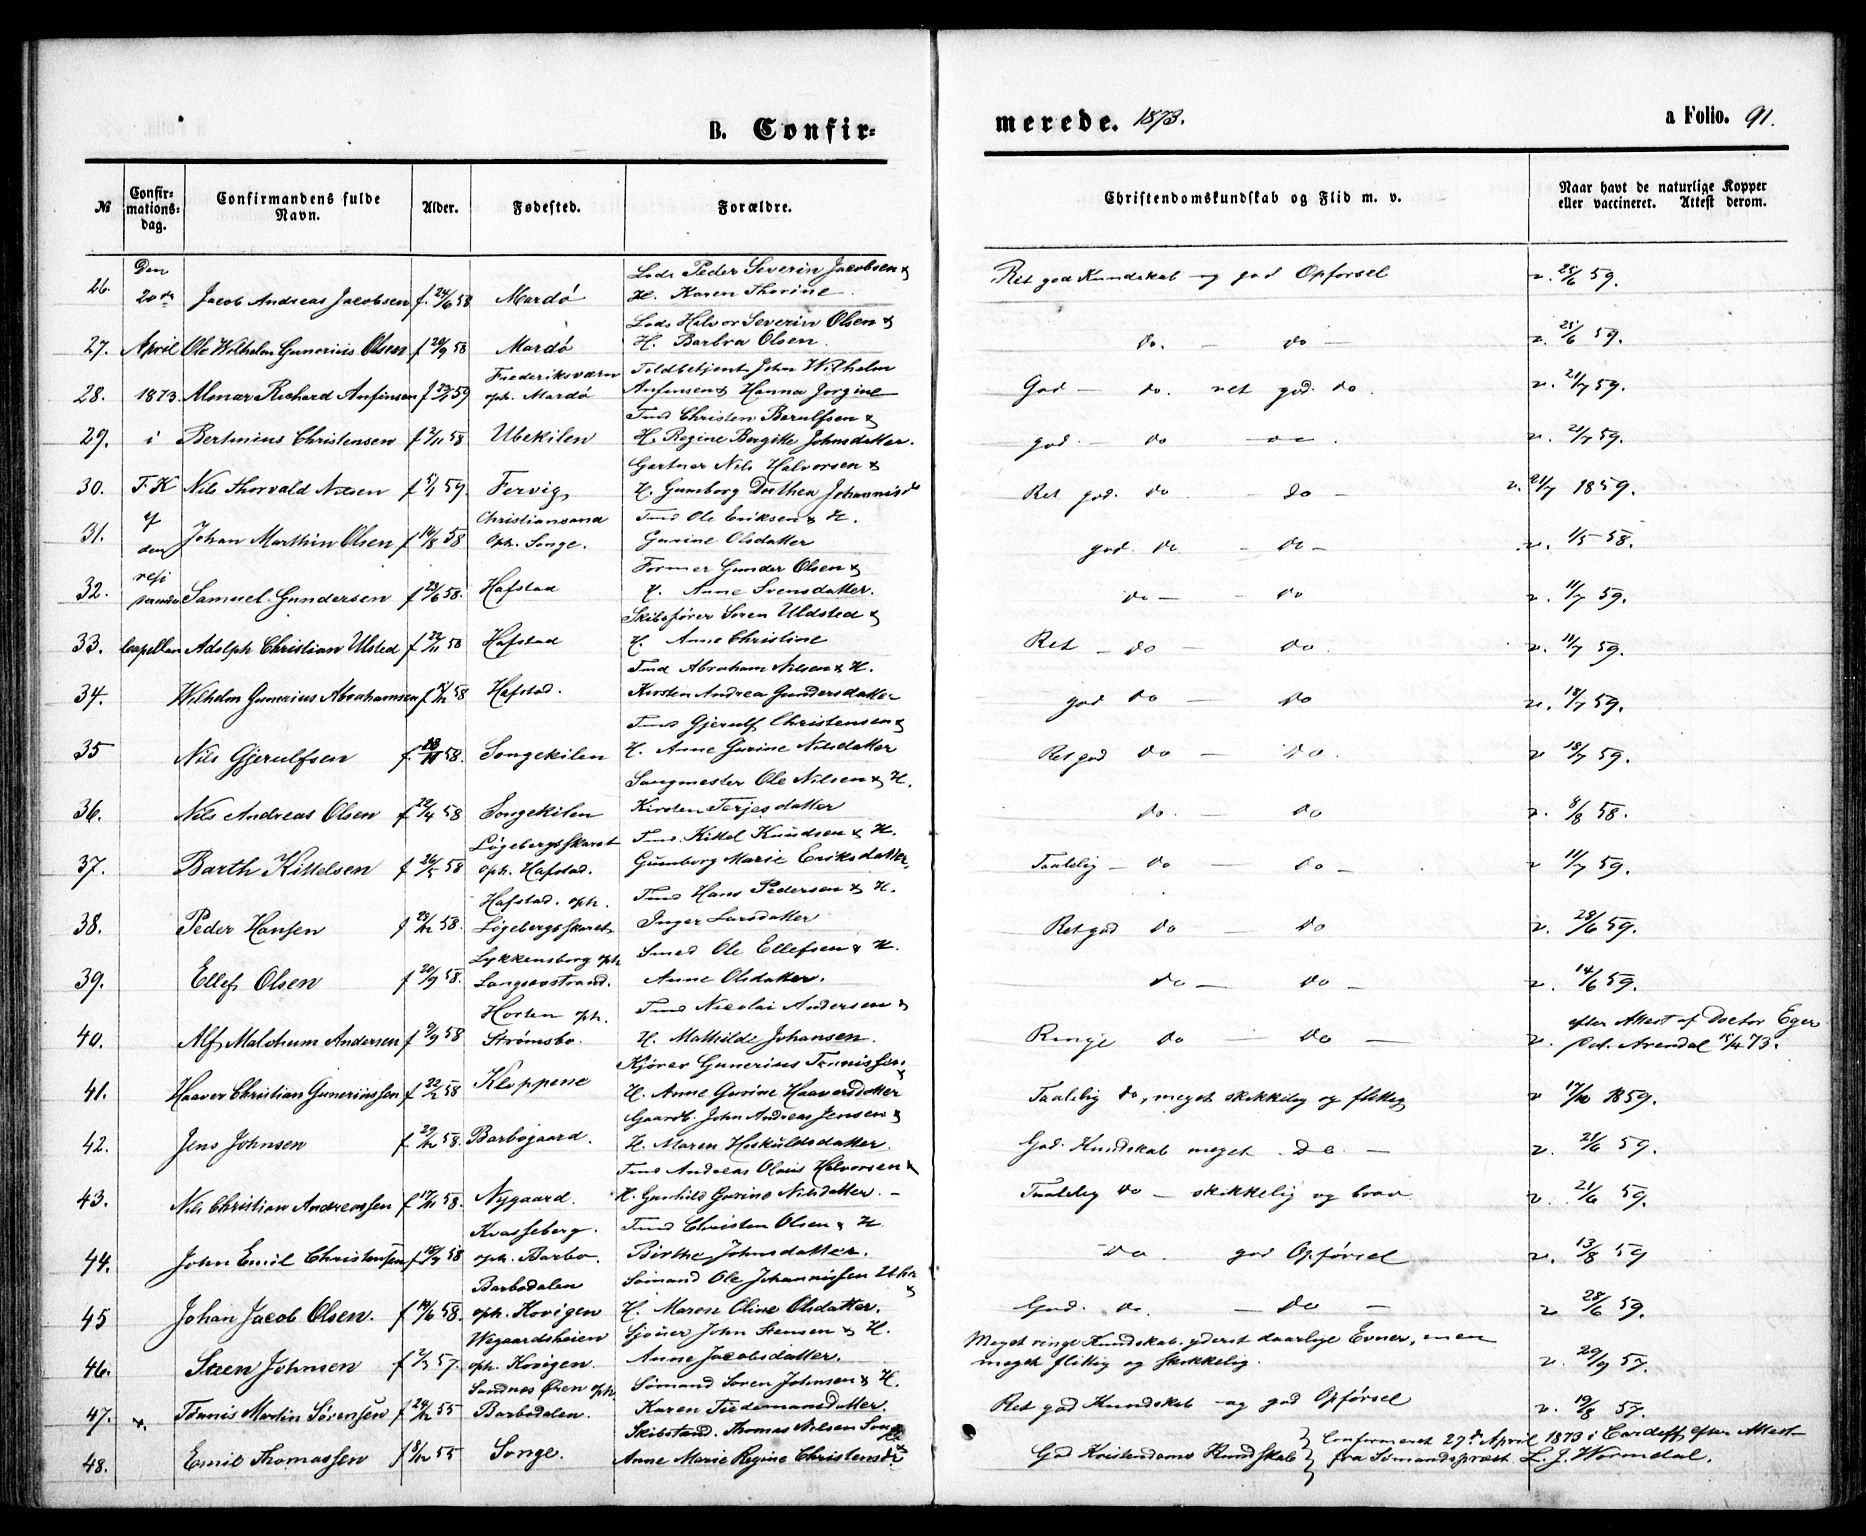 B. Confir=
merede. 1873.
a Folio. 91.
№
Confir=
mations=
dag.
Confirmandens fulde
Navn.
Alder.
Fødested.
Forældre.
Christendomskundskab og Flid m. v.
Naar havt de naturlige Kopper
eller vaccineret. Attest derom.
Den
Lods Peder Severin Jacobsen &
26. 20de Jacob Andreas Jacobsen f. 24/6 58 Mardö H. Karen Thorine Ret god Kundskab og god Opforsel v. 25/6 59.
Lods Halvor Severin Olsen &
27. April Ole Wilhelm Gunerius Olsen f 20/9 58 Mardö H. Barbra Olsen. do. - do - v. 25/6 59.
Frederiksværn Toldbetjent John Wilhelm
28. 1873. Almar Richard Anfinsen f 59 oph. Mardö Anfinsen & Hanna Jorgine God - do. ret god. do v. 21/7 59.
Tmd Christen Berulfsen &
29. i Bertinius Christensen f 2/11 58 Ubekilen H. Regine Bergitte Johnsdatter. god. - do v. 21/7 59.
Gartner Nils Halvorsen &
30. T. K Nils Thorvald Nilsen f 5/1 59. Fervig H. Gumborg Dorthea Johannisd. Ret god. do - do - v. 21/7 1859.
af Christiansand Tmd Ole Eriksen & H.
31. den Johan Marthin Olsen f 14/8 58 oph. Songe. Gurine Olsdatter god. do - do - v. 1/5 - 58.
resi Former Gunder Olsen &
32. Samuel Gundersen f 23/6 58. Hafstad H. Anne Svensdatter. do - - do v. 11/7 59.
Skibsfører Soren Uldsted &
33. Capellan Adolph Christian Ulsted f 22/11 58 Hafstad H. Anne Christine Ret - do - do. v. 11/7 59.
Tmd Abraham Nilsen & H.
34. Wilhelm Gunerius Abrahamsen f 58 Hafstad. Kirsten Andrea Gundersdatter god do - do v. 18/7 59.
Tmd Gjerulf Christensen &
35 Nils Gjerulfsen f. 58. Songekilen H. Anne Gurine Nilsdatter Ret god do - do v 18/7 59.
Saugmester Ole Nilsen & H.
36. Nils Andreas Olsen f 20/4 58 Songekilen Kirsten Terjesdatter do. - do v. 8/8 58.
Løgebergsskaret Tmd. Kittel Knudsen & H.
37. Barth Kittelsen f 26/5 58 oph. Hafstad. Gumborg Marie Eriksdatter. Taalelig - do - do - v 11/7 59.
Hafstad. oph. Tmd Hans Pedersen & H.
38. Peder Hansen f 23/12 58. Løgebergsskaret Inger Larsdatter Ret god do - do v. 28/6 59.
Lykkensborg oph. Smed Ole Ellefsen & H.
39. Ellef Olsen f 20/9 58. Langsæstrand. Anne Olsdatter. do - do - v. 14/6 59.
Horten oph. Tmd Nicolai Andersen & efter Attest af Doctor Eger
40. Alf Malchum Andersen f 9/9 58 Strømsbo. H. Mathilde Johansen. Ringe do - do - v. dat. Arendal 15/4 73.
Kjører Gunerius Tønnissen
41. Haaver Christian Guneriussen f 22/2 58 Kloppene H. Anne Gurine Haaversdatter Taalelig do, meget skikkelig og flittig v 17/10 1859.
Gaardb. John Andreas Jensen &
42. Jens Johnsen f. 29/12 58. Barbogaard. H. Maren Hoskuldsdatter. God. Kundskab meget. Do. - v. 21/6 59.
Tmd Andreas Olaus Halvorsen &
43. Nils Christian Andreassen f 17/11 58. Nygaard. H. Gunhild Gurine Nilsdatter. - Taalelig do - skikkelig og brav v. 21/6 59.
Kvasseberg. Tmd Christen Olsen & H
44. John Emil Christensen f 18/9 58 oph. Barbo. Birthe Johnsdatter. Do. god Opførsel v. 13/8 59
Barbodalen Sömand Ole Johannissen
45 Johan Jacob Olsen. f 14/6 58. oph. Kovigen H. Maren Oline Olsdatter. God. do. - do - v 28/6 59.
Wegaardsheien Sjouer John Stensen & H. Meget ringe Kundskab. yderst daarlige Evner, men
46. Steen Johnsen f 2/3 57. oph. Kovigen. Anne Jacobsdatter. meget flittig og skikkelig. v. 29/9 57.
Sandnæs Øren oph. Sömand Soren Johnsen & H.
47. Tönnis Martin Sörensen f 24/12 55 Barbodalen. Karen Tiedemansdatter. Ret god Kundskab og god Opførsel v. 19/8 57.
Skibstømd. Thomas Nilsen Songe Confirmeret 27de April 1873 i Cardiff efter Attest
48. Emil Thomassen f 8/12 55 Songe. Anne Marie Regine Christensdr God Kristendoms Kundskab fra Sömandspræst L. J. Wormdal.